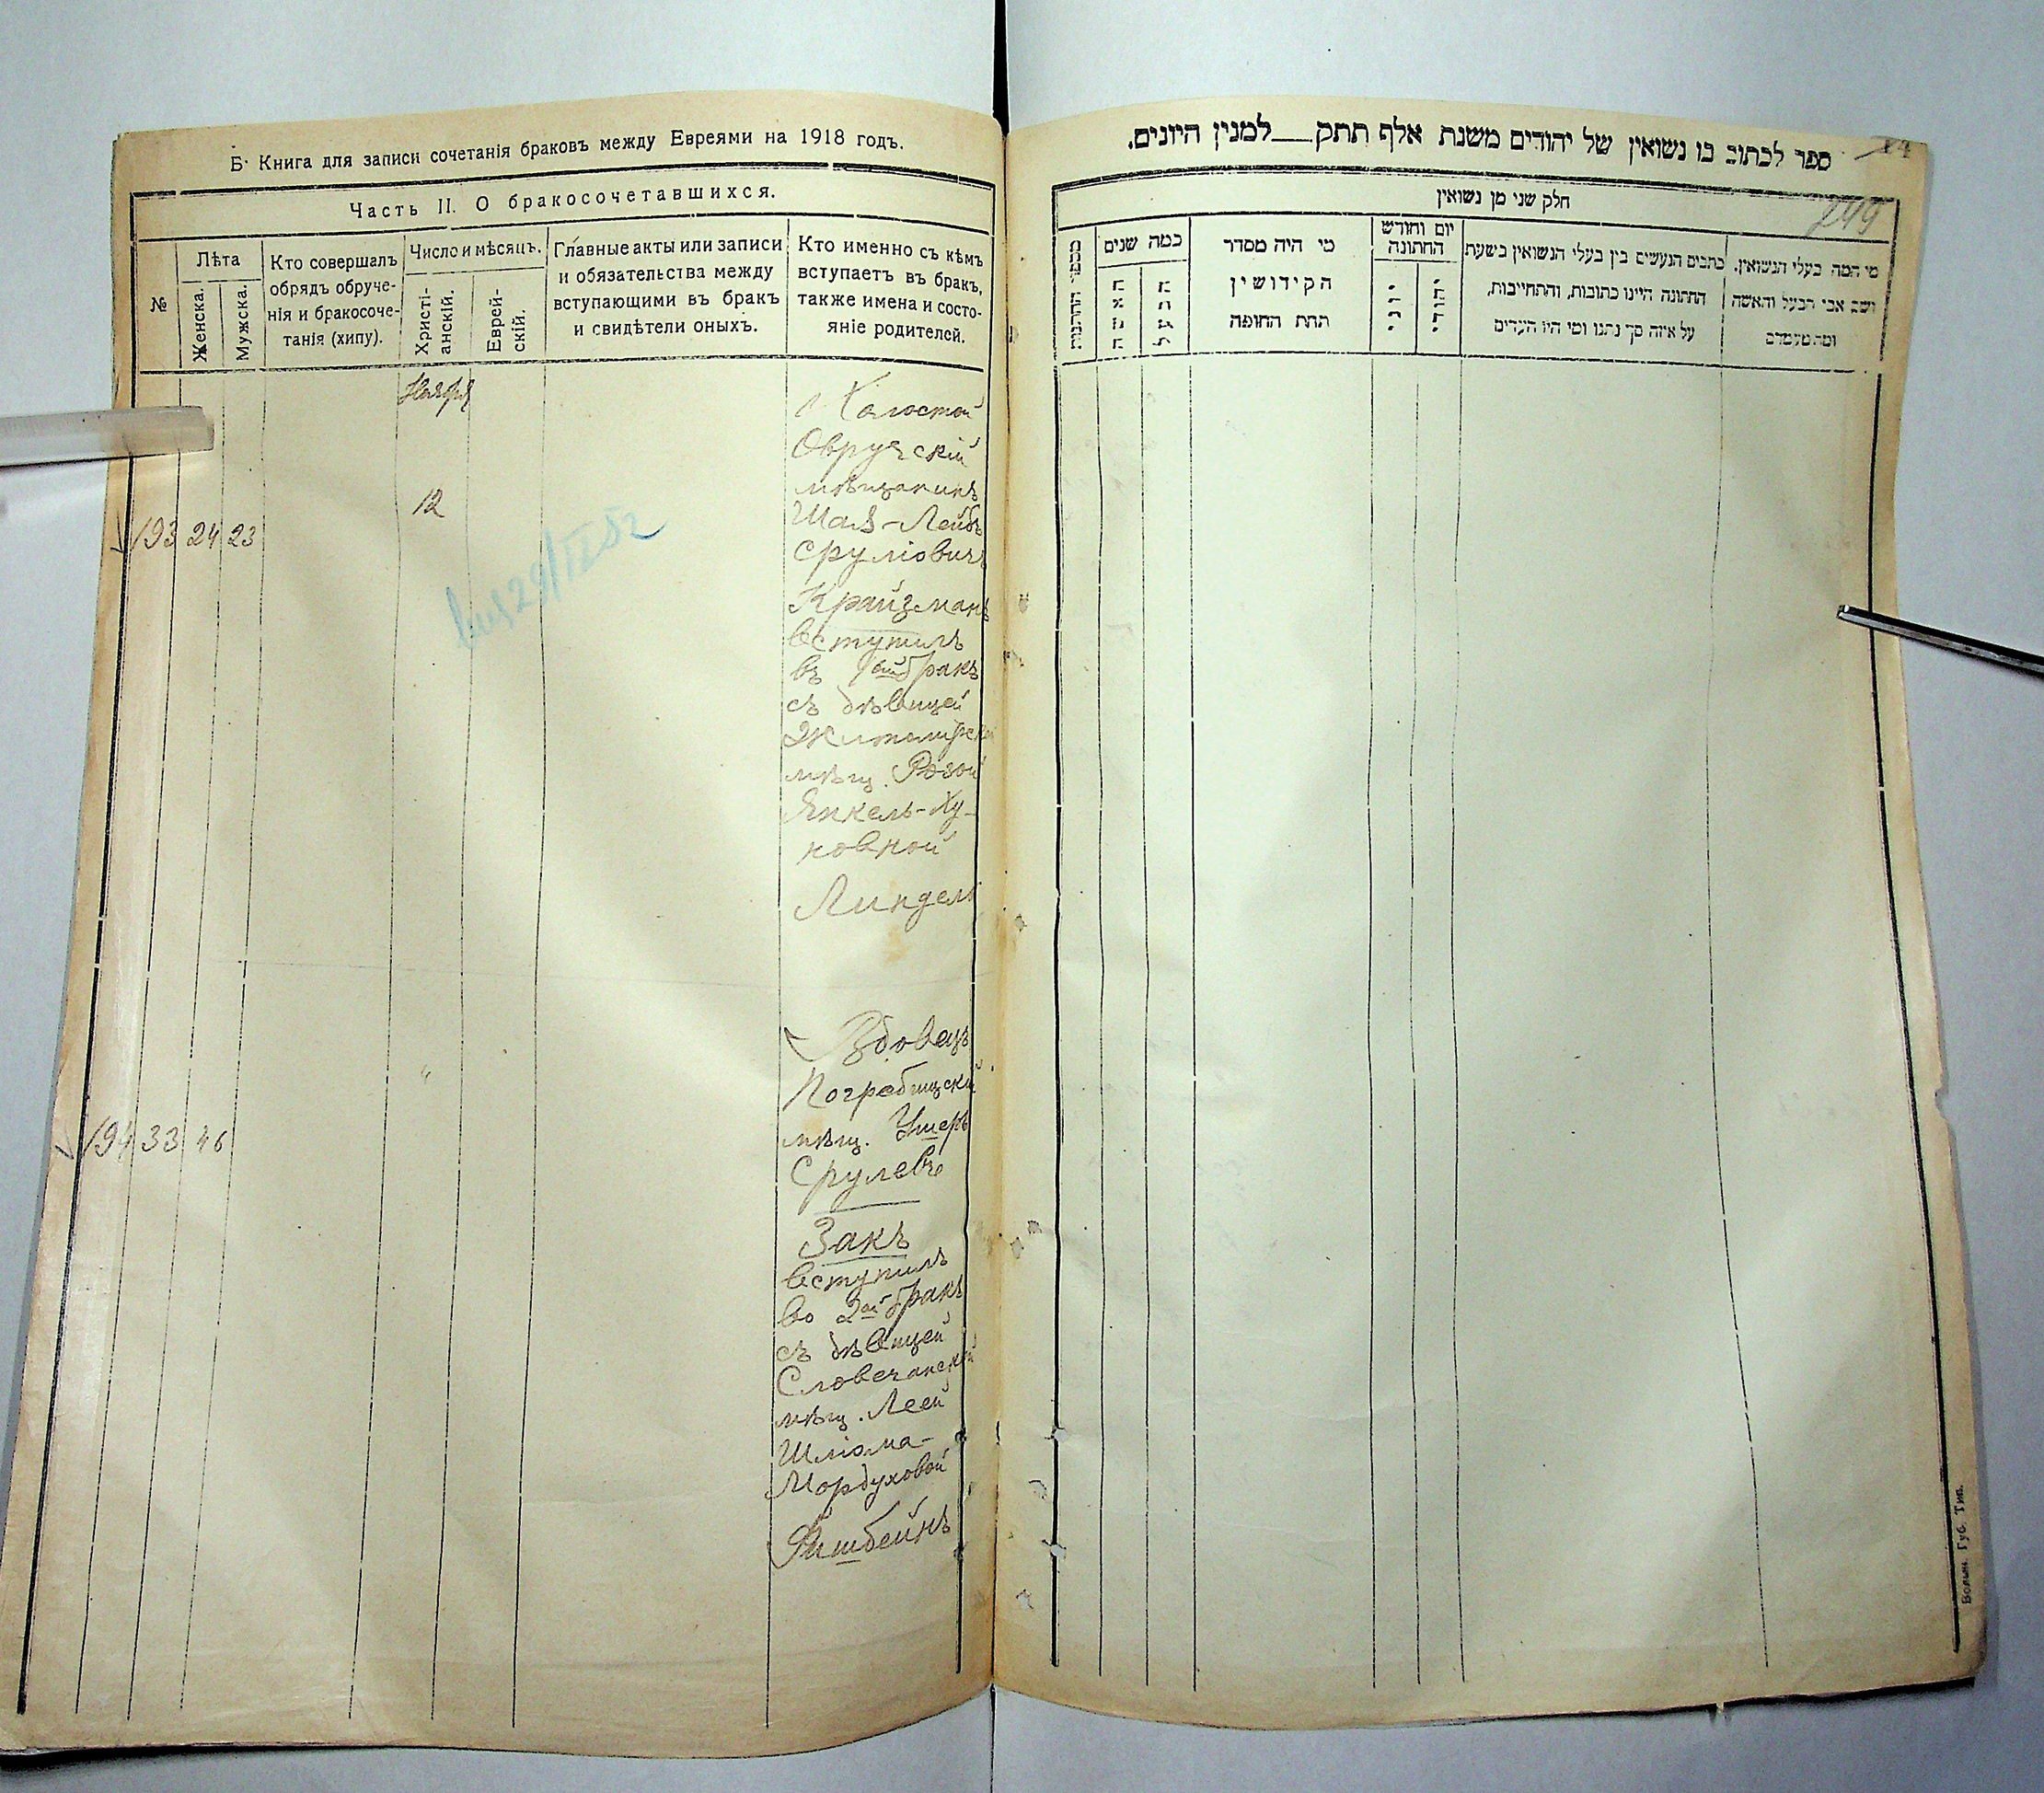 Б. Книга для записи сочетанія браковъ между Евреями на 1918 годъ.
Часть II. О бракосочетавшихся.
№
Лѣта
Женска.
Мужска.
Кто совершалъ
обрядъ обруче-
нія и бракосоче-
танія (хипу).
Число и мѣсяцъ.
Христі-
анскій.
Еврей-
скій.
Главные акты или записи
и обязательства между
вступающими въ бракъ
и свидѣтели оныхъ.
Кто именно съ кѣмъ
вступаетъ въ бракъ,
также имена и состо-
яніе родителей.
Ноября
12
193 24 23
Холостой
Овручскій
мѣщанинъ
Шая-Лейбъ
Сруліовичъ
Крайзманъ
вступилъ
въ 1ый бракъ
съ дѣвицей
Житомірской
мѣщ. Розой
Янкель-Ну-
ховной
Линдель
194 33 46
"
Вдовецъ
Погребищскій
мѣщ. Ушеръ
Срулевъ
Закъ
вступилъ
во 2ой бракъ
съ дѣвицей
Словечанской
мѣщ. Леей
Шліома-
Мордуховой
Фишбейнъ
ספר לכתוב בו נשואין של יהודים משנת אלף תתק___למנין היונים.
249
חלק שני מן נשואין
מספר החתונות
כמה שנים
האשה
הבעל
מי היה מסדר
הקידושין
תחת החופה
יום וחודש
החתונה
יוני
יהודי
כתבים הנעשים בין בעלי הנשואין בשעת
החתונה היינו כתובות, והתחייבות,
על איזה סך נתנו ומי היו העדים
מי המה בעלי הנשואין,
ושם אבי הבעל והאשה
ומה מעמדם
Волын. Губ. Тип.